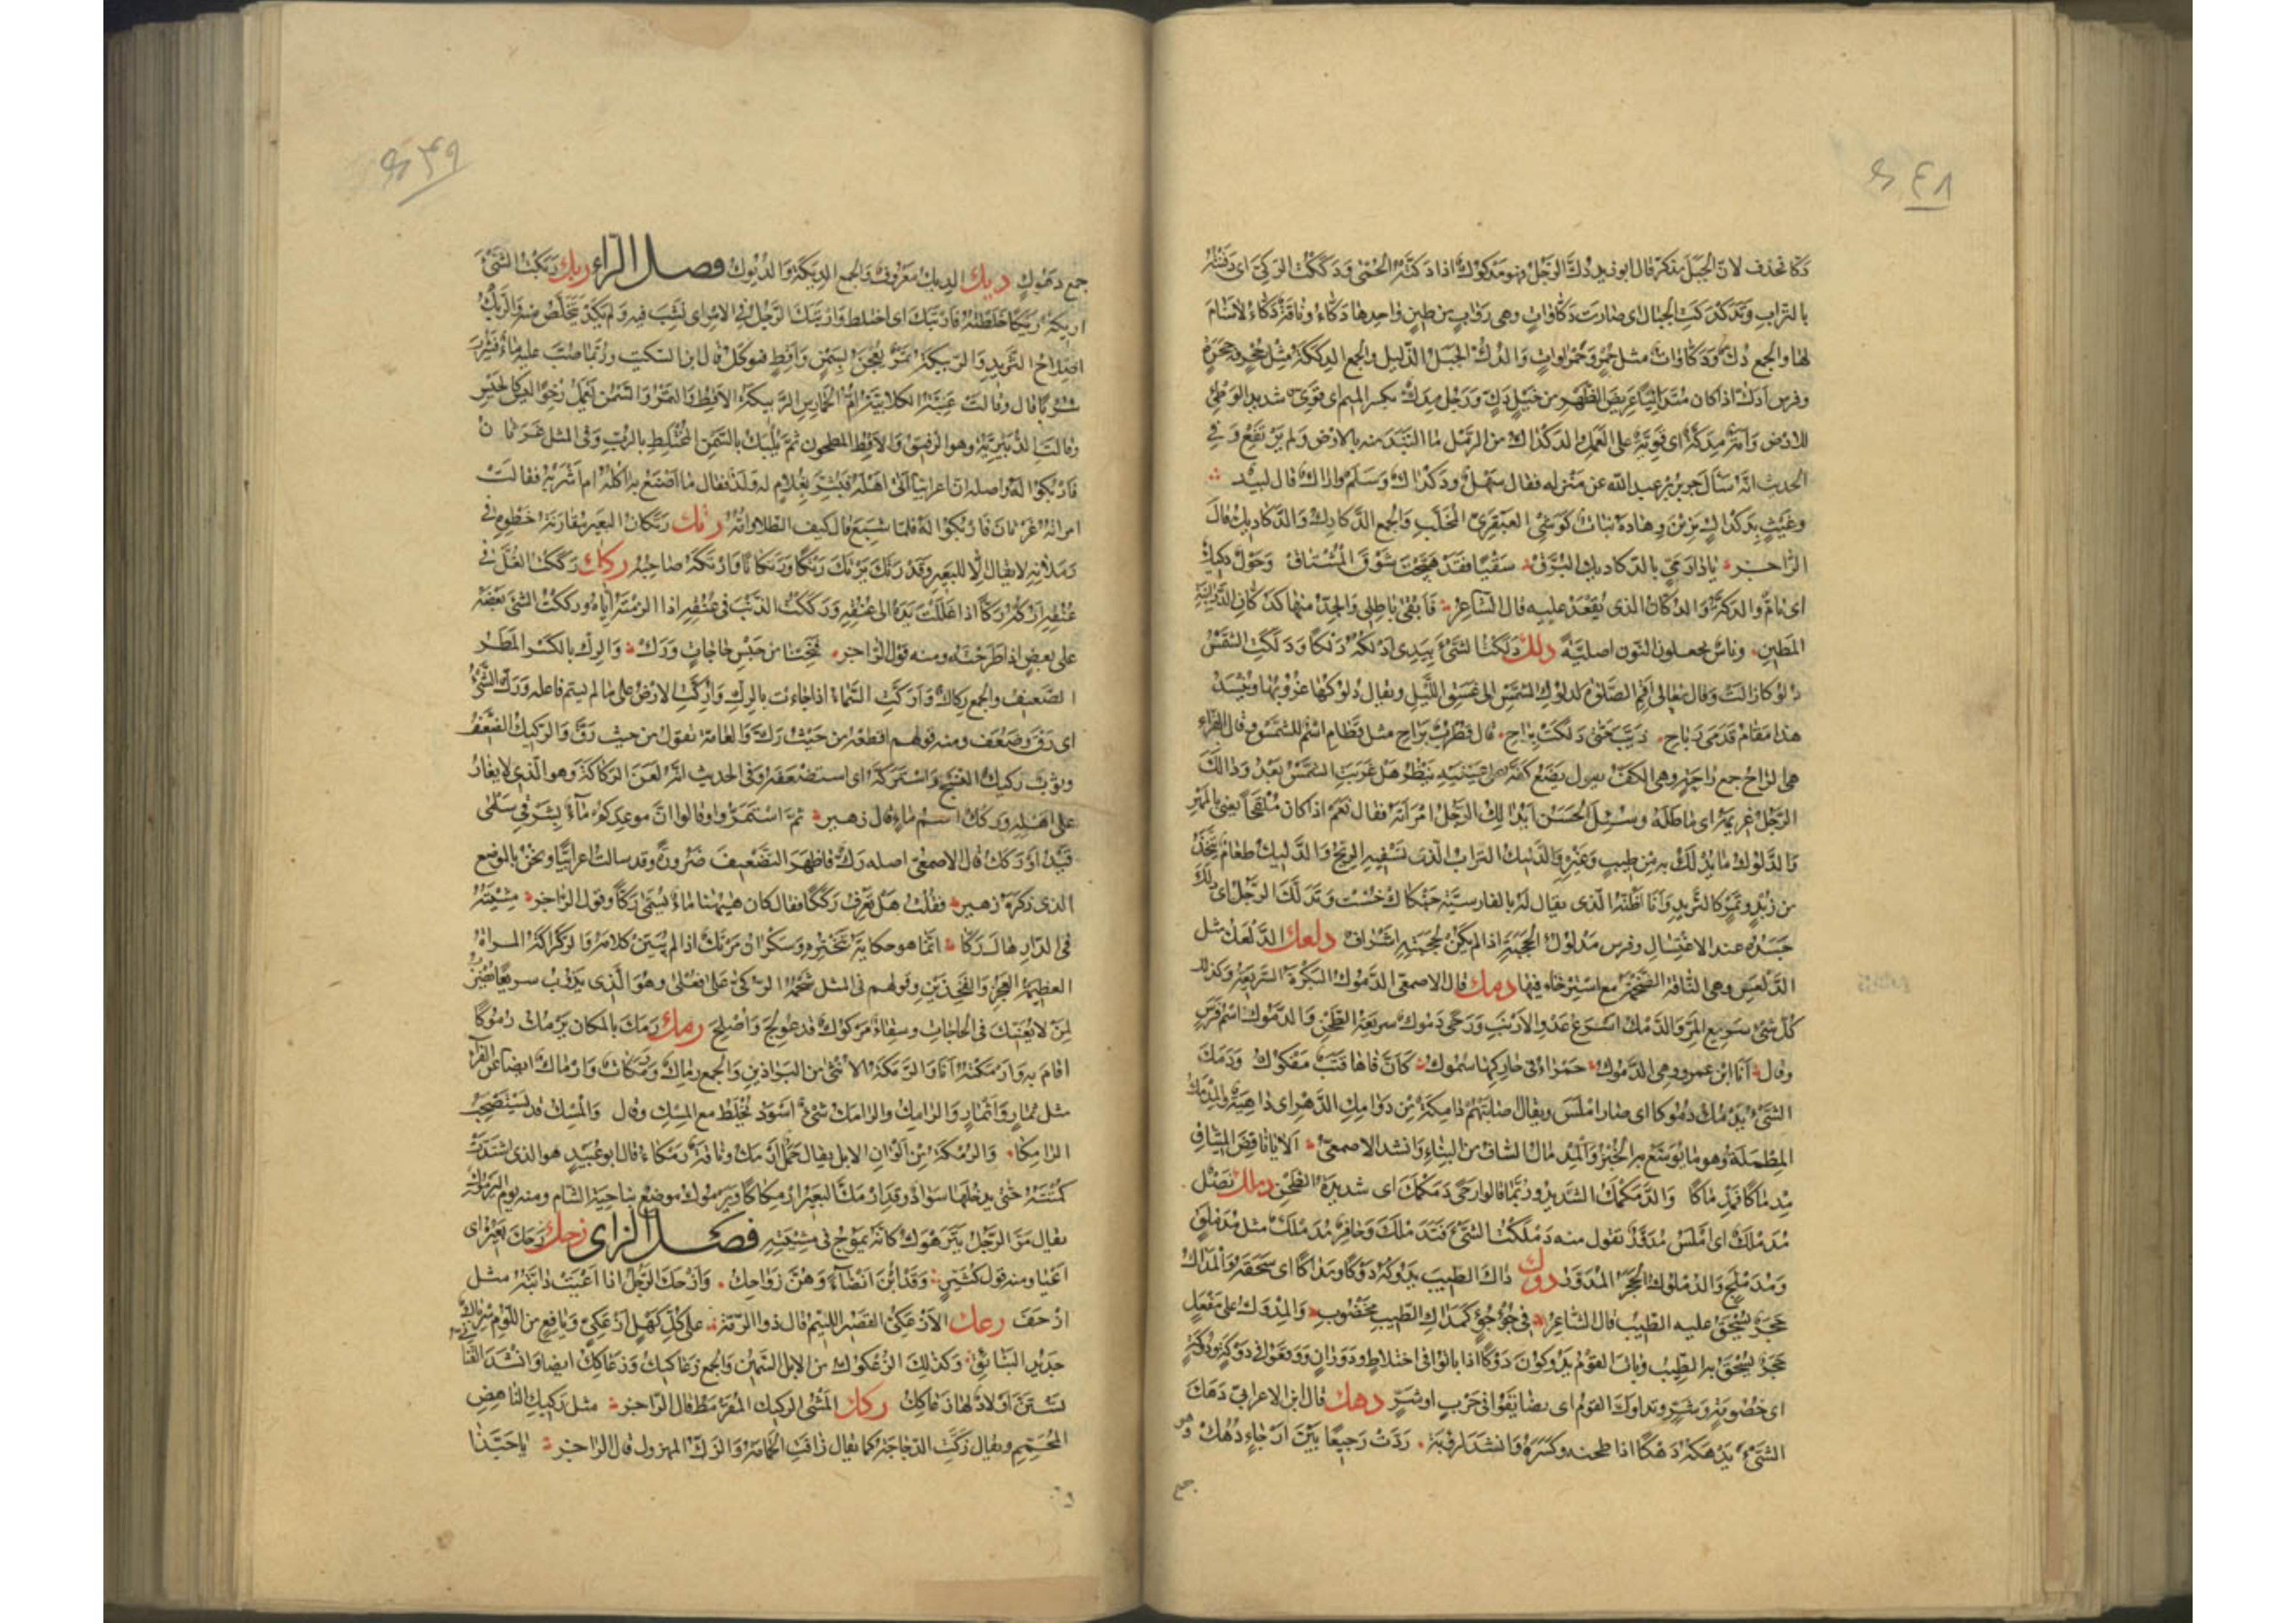 ٤٨
دكا فحذف لان الجبل مذكر قال ابو زيد دك الرجل فهو مدكوك اذا دكته الحمى ودككت الركي اي دفنته
بالتراب وتدكدكت الجبال اي صارت دكاوات وهي رواب من طين واحدها دكاء وناقة دكاء لا سنام
لها والجمع دك ودكاوات مثل حمر وحمراوات والدك الجبل الذليل والجمع الدككة مثل جحر وجحرة
وفرس ادك اذا كان متدانيا عريض الظهر من خيل دك ورجل مدك بكسر الميم اي قوي شديد الوطئ
للارض وامة مدكة اي قوية على العمل الدكداك من الرمل ما التبد منه بالارض ولم يرتفع وفي
الحديث انه سأل جرير بن عبد الله عن منزله فقال سهل ودكداك وسلم واراك قال لبيد
وغيث بدكداك يزين وهاده نبات كوشي العبقري المخلب والجمع الدكادك والدكاديك قال
الراجز يا دار مي بالدكاديك البرق سقيا فقد هيجت شوق المشتاق وحول دكيك
اي تام والدكة والدكان الذي يقعد عليه قال الشاعر فابقى باطلي والجد منها كدكان الدرابنة
المطين وناس يجعلون النون اصلية دلك دلكت الشئ بيدي ادلكه دلكا ودلكت الشمس
دلوكا زالت وقال تعالى اقم الصلوة لدلوك الشمس الى غسق الليل ويقال دلوكها غروبها وينشد
هذا مقام قدمي رباح ذبب حتى دلكت براح قال قطرب براح مثل قطام اسم للشمس وقال الفراء
هي الراح جمع راحة وهي الكف يقول يضع كفه على عينيه ينظر هل غربت الشمس بعد ودالك
الرجل غريمه اي ماطله وسئل الحسن ايدالك الرجل امرأته فقال نعم اذا كان ملفجا يعني بالمهر
والدلوك ما يدلك به من طيب وغيره والدليك التراب الذي تسفيه الريح والدليك طعام يتخذ
من زبد وتمر كالثريد وانا اظنه الذي يقال له بالفارسية جنكال خست وتدلك الرجل اي دلك
جسده عند الاغتسال وفرس مدلوك الحجبة اذا لم يكن لحجبته اشراف دلعك الدلعك مثل
الدلعس وهي الناقة الضخمة مع استرخاء فيها دمك قال الاصمعي الدموك البكرة السريعة وكذلك
كل شئ سريع المر والدمك اسرع عدو الارنب ورحى دموك سريعة الطحن والدموك اسم فرس
وقال انا ابن عمرو وهي الدموك حمراء في حاركها سموك كان فاها قتب مفكوك ودمك
الشئ يدمك دموكا اي صار املس ويقال اصابتهم دامكة من دوامك الدهر اي داهية والمدمك
المطملة وهو ما يوسع به الخبز والمدماك الساف من البناء وانشد الاصمعي الا يا ناقض الميثاق
مدماكا فمدماكا والدمكمك الشديد وربما قالوا رحى دمكمك اي شديدة الطحن دملك نصل
مدملك اي املس مدقق تقول منه دملكت الشئ فتدملك وحافر مدملك مثل مدملق
ومدملج والدملوك الحجر المدور دوك داك الطيب يدوكه دوكا ومداكا اي سحقه والمداك
حجر يسحق عليه الطيب قال الشاعر في جؤجؤ كمداك الطيب مخضوب والمدوك على مفعل
حجر يسحق به الطيب وبات القوم يدوكون دوكا اذا باتوا في اختلاط ودوران ووقعوا في دوكة ودوكة
اي خصومة وشر وتداوك القوم اي تضايقوا في حرب او شر دهك قال ابن الاعرابي دهك
الشئ يدهكه دهكا اذا طحنه وكسره وانشد لرؤبة ردت رجيعا بين ارحاء دهك وهو
جمع
٤٩
جمع دهوك ديك الديك معروف والجمع الديكة والديوك فصل الراء ربك ربكت الشئ
اربكه ربكا خلطته فارتبك اي اختلط وارتبك الرجل في الامر اي نشب فيه ولم يكد يتخلص منه والربك
اصلاح الثريد والربيكة تمر يعجن بسمن واقط فيؤكل قال ابن السكيت وربما صب عليه ماء فشرب
شربا قال وقالت غنية الكلابية ام الحمارس الربيكة الاقط والتمر والسمن يعمل رخوا ليس كالحيس
وقالت الدبيرية وهو الرقيق والاقط المطحون ثم يلبك بالسمن المختلط بالرب وفي المثل غرثان
فاربكوا له واصله ان اعرابيا اتى اهله فبشر بغلام له ولد فقال ما اصنع به اآكله ام اشربه فقالت
امرأته غرثان فاربكوا له فلما شبع قال كيف الطلا وامه رتك رتكان البعير مقاربة خطوه في
رملانه لا يقال الا للبعير وقد رتك يرتك رتكا ورتكانا وارتكه صاحبه ركك رككت الغل في
عنقه اركه ركا اذا غللت يده الى عنقه ورككت الذنب في عنقه اذا الزمته اياه ورككت الشئ بعضه
على بعض اذا طرحته ومنه قول الراجز فنجنا من حبس حاجات ورك والرك بالكسر المطر
الضعيف والجمع ركاك واركت السماء اذا جاءت بالرك واركت الارض على ما لم يسم فاعله ورك الشئ
اي رق وضعف ومنه قولهم اقطعه من حيث رك والعامة تقول من حيث رق والركيك الضعيف
وثوب ركيك النسج واستركه اي استضعفه وفي الحديث انه لعن الركاكة وهو الذي لا يغار
على اهله وركك اسم ماء قال زهير ثم استمروا وقالوا ان موعدكم ماء بشرقي سلمى
فيد او ركك قال الاصمعي اصله رك فاظهر التضعيف ضرورة وقد سالت اعرابيا ونحن بالموضع
الذي ذكره زهير فقلت هل تعرف رككا فقال كان هيهنا ماء يسمى ركا وقول الراجز مشيته
في الدار هاك ركا انما هو حكاية تبختره وسكران مرتك اذا لم يبين كلامه والركراكة المراة
العظيمة العجز والفخذين وقولهم في المثل شحمة الركى على فعلى وهو الذي يذوب سريعا يضرب
لمن لا يغنيك في الحاجات وسقاء مركوك قد عولج واصلح رمك رمك بالمكان يرمك رموكا
اقام به وارمكته انا والرمكة الانثى من البراذين والجمع رماك ورمكات وارماك ايضا عن الفراء
مثل ثمار واثمار والرامك والرامك شئ اسود يخلط مع المسك وقال والمسك قد يستصحب
الرامكا والرمكة من الوان الابل يقال جمل ارمك وناقة رمكاء قال ابو عبيد هو الذي اشتدت
كمتته حتى يدخلها سواد وقد ارمك البعير ارمكاكا ويرموك موضع بناحية الشام ومنه يوم اليرموك
يقال مر الرجل يترهوك كانه يموج في مشيته فصل الزاي زحك زحك بعيره اي
اعيا ومنه قول كثير وقد ابن انضاء وهن زواحك وازحك الرجل اذا اعيت دابته مثل
ازحف زعك الازعكي القصير اللئيم قال ذو الرمة على كل كهل ازعكي ويافع من اللؤم سربال
جديد البنائق وكذلك الزعكوك من الابل السمين والجمع زعاكيك وزعاكك ايضا وانشد القنا
تستن اولاد لها زعاكك زكك المشي الزكيك المقرمط قال الراجز مثل زكيك الناهض
المحمم ويقال زكت الدجاجة كما يقال زافت الحمامة والزك المهزول قال الراجز يا حبذا